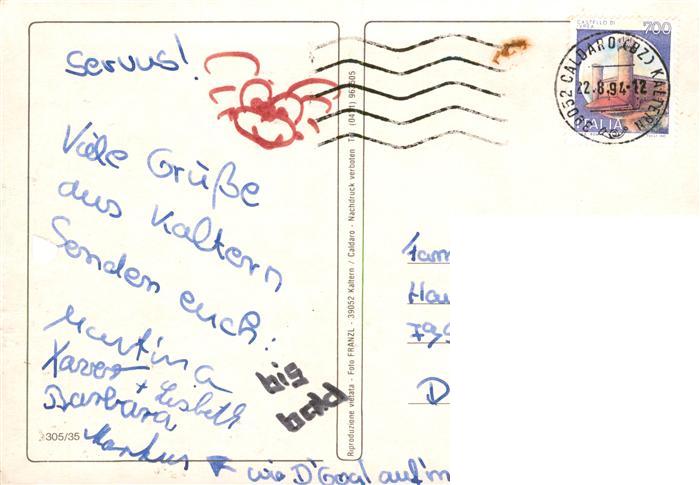 Servus!
Viele Grüße
aus Kaltern
Senden euch:
Martina
Xaver + Lisbeth
Barbara
Markus
wia D'Goaß auf'm
bis
bald
305/35
Riproduzione vietata - Foto FRANZL - 39052 Kaltern / Caldaro - Nachdruck verboten
CASTELLO DI
700
ITALIA
39052 CALDARO (BZ) KALTERN
22.8.94-12
Fam
Hau
D